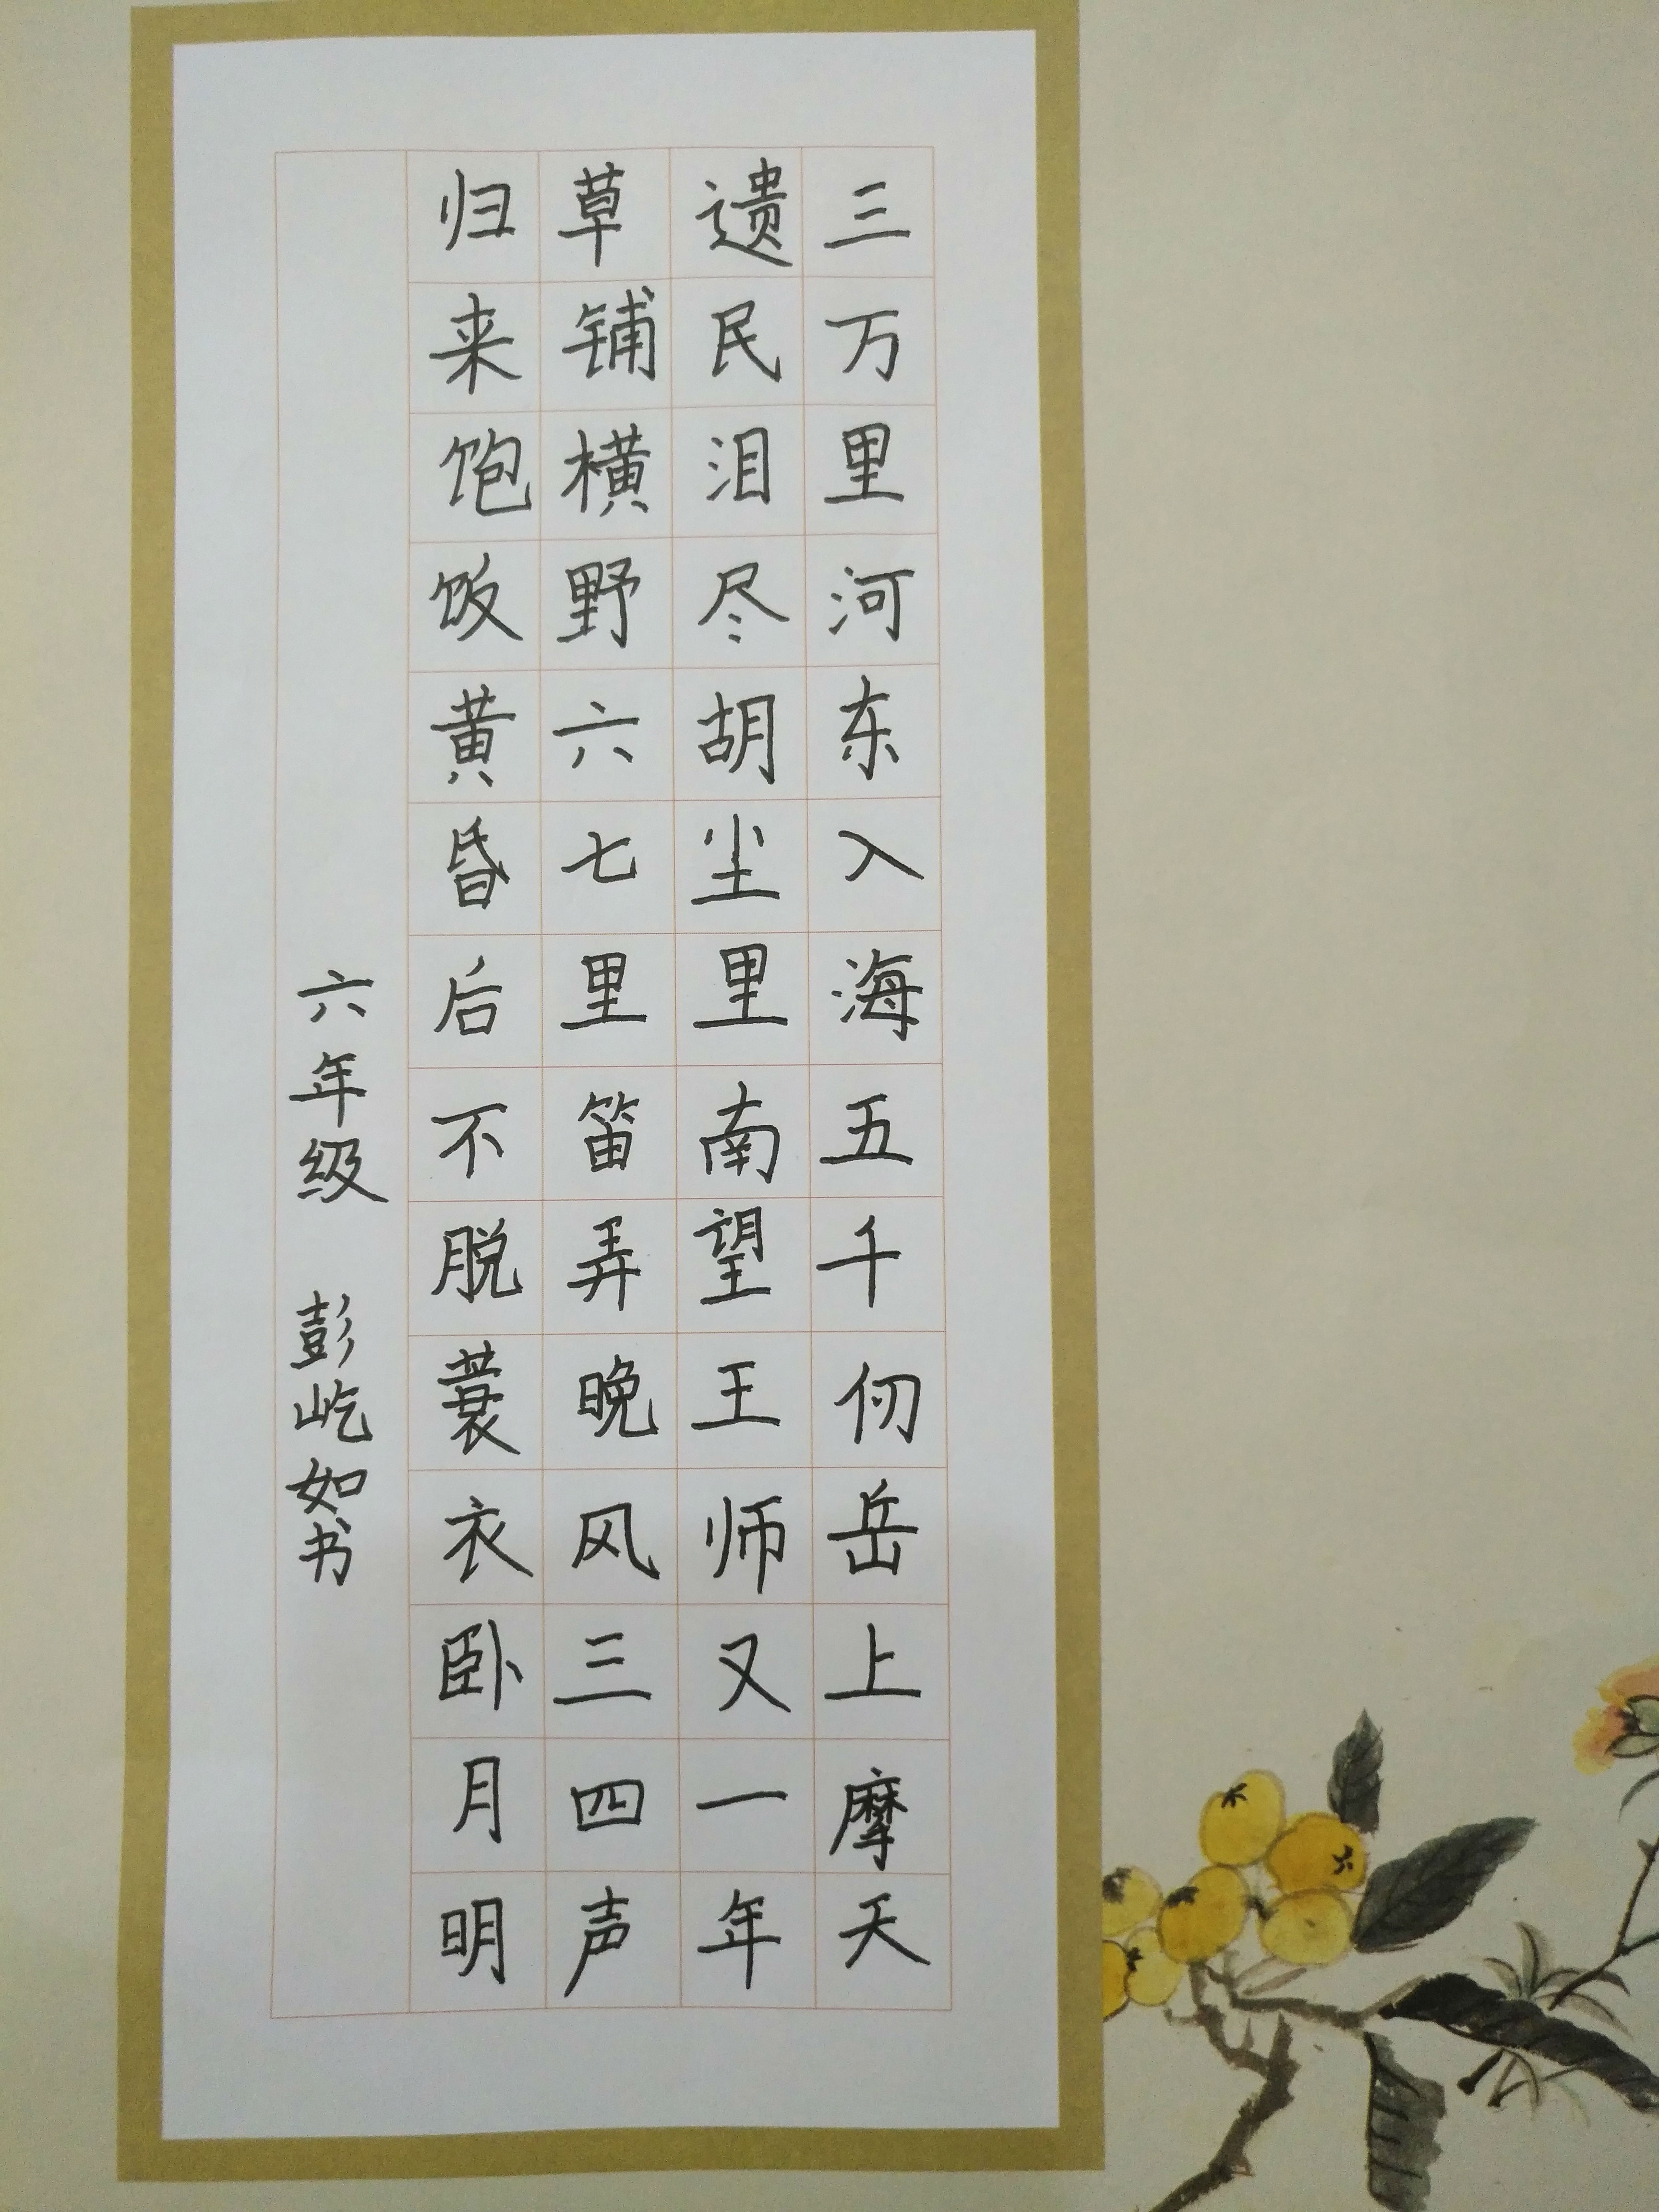 三万里河东入海五千仞岳上摩天
遗民泪尽胡尘里南望王师又一年
草铺横野六七里笛弄晚风三四声
归来饱饭黄昏后不脱蓑衣卧月明
六年级 彭屹如书